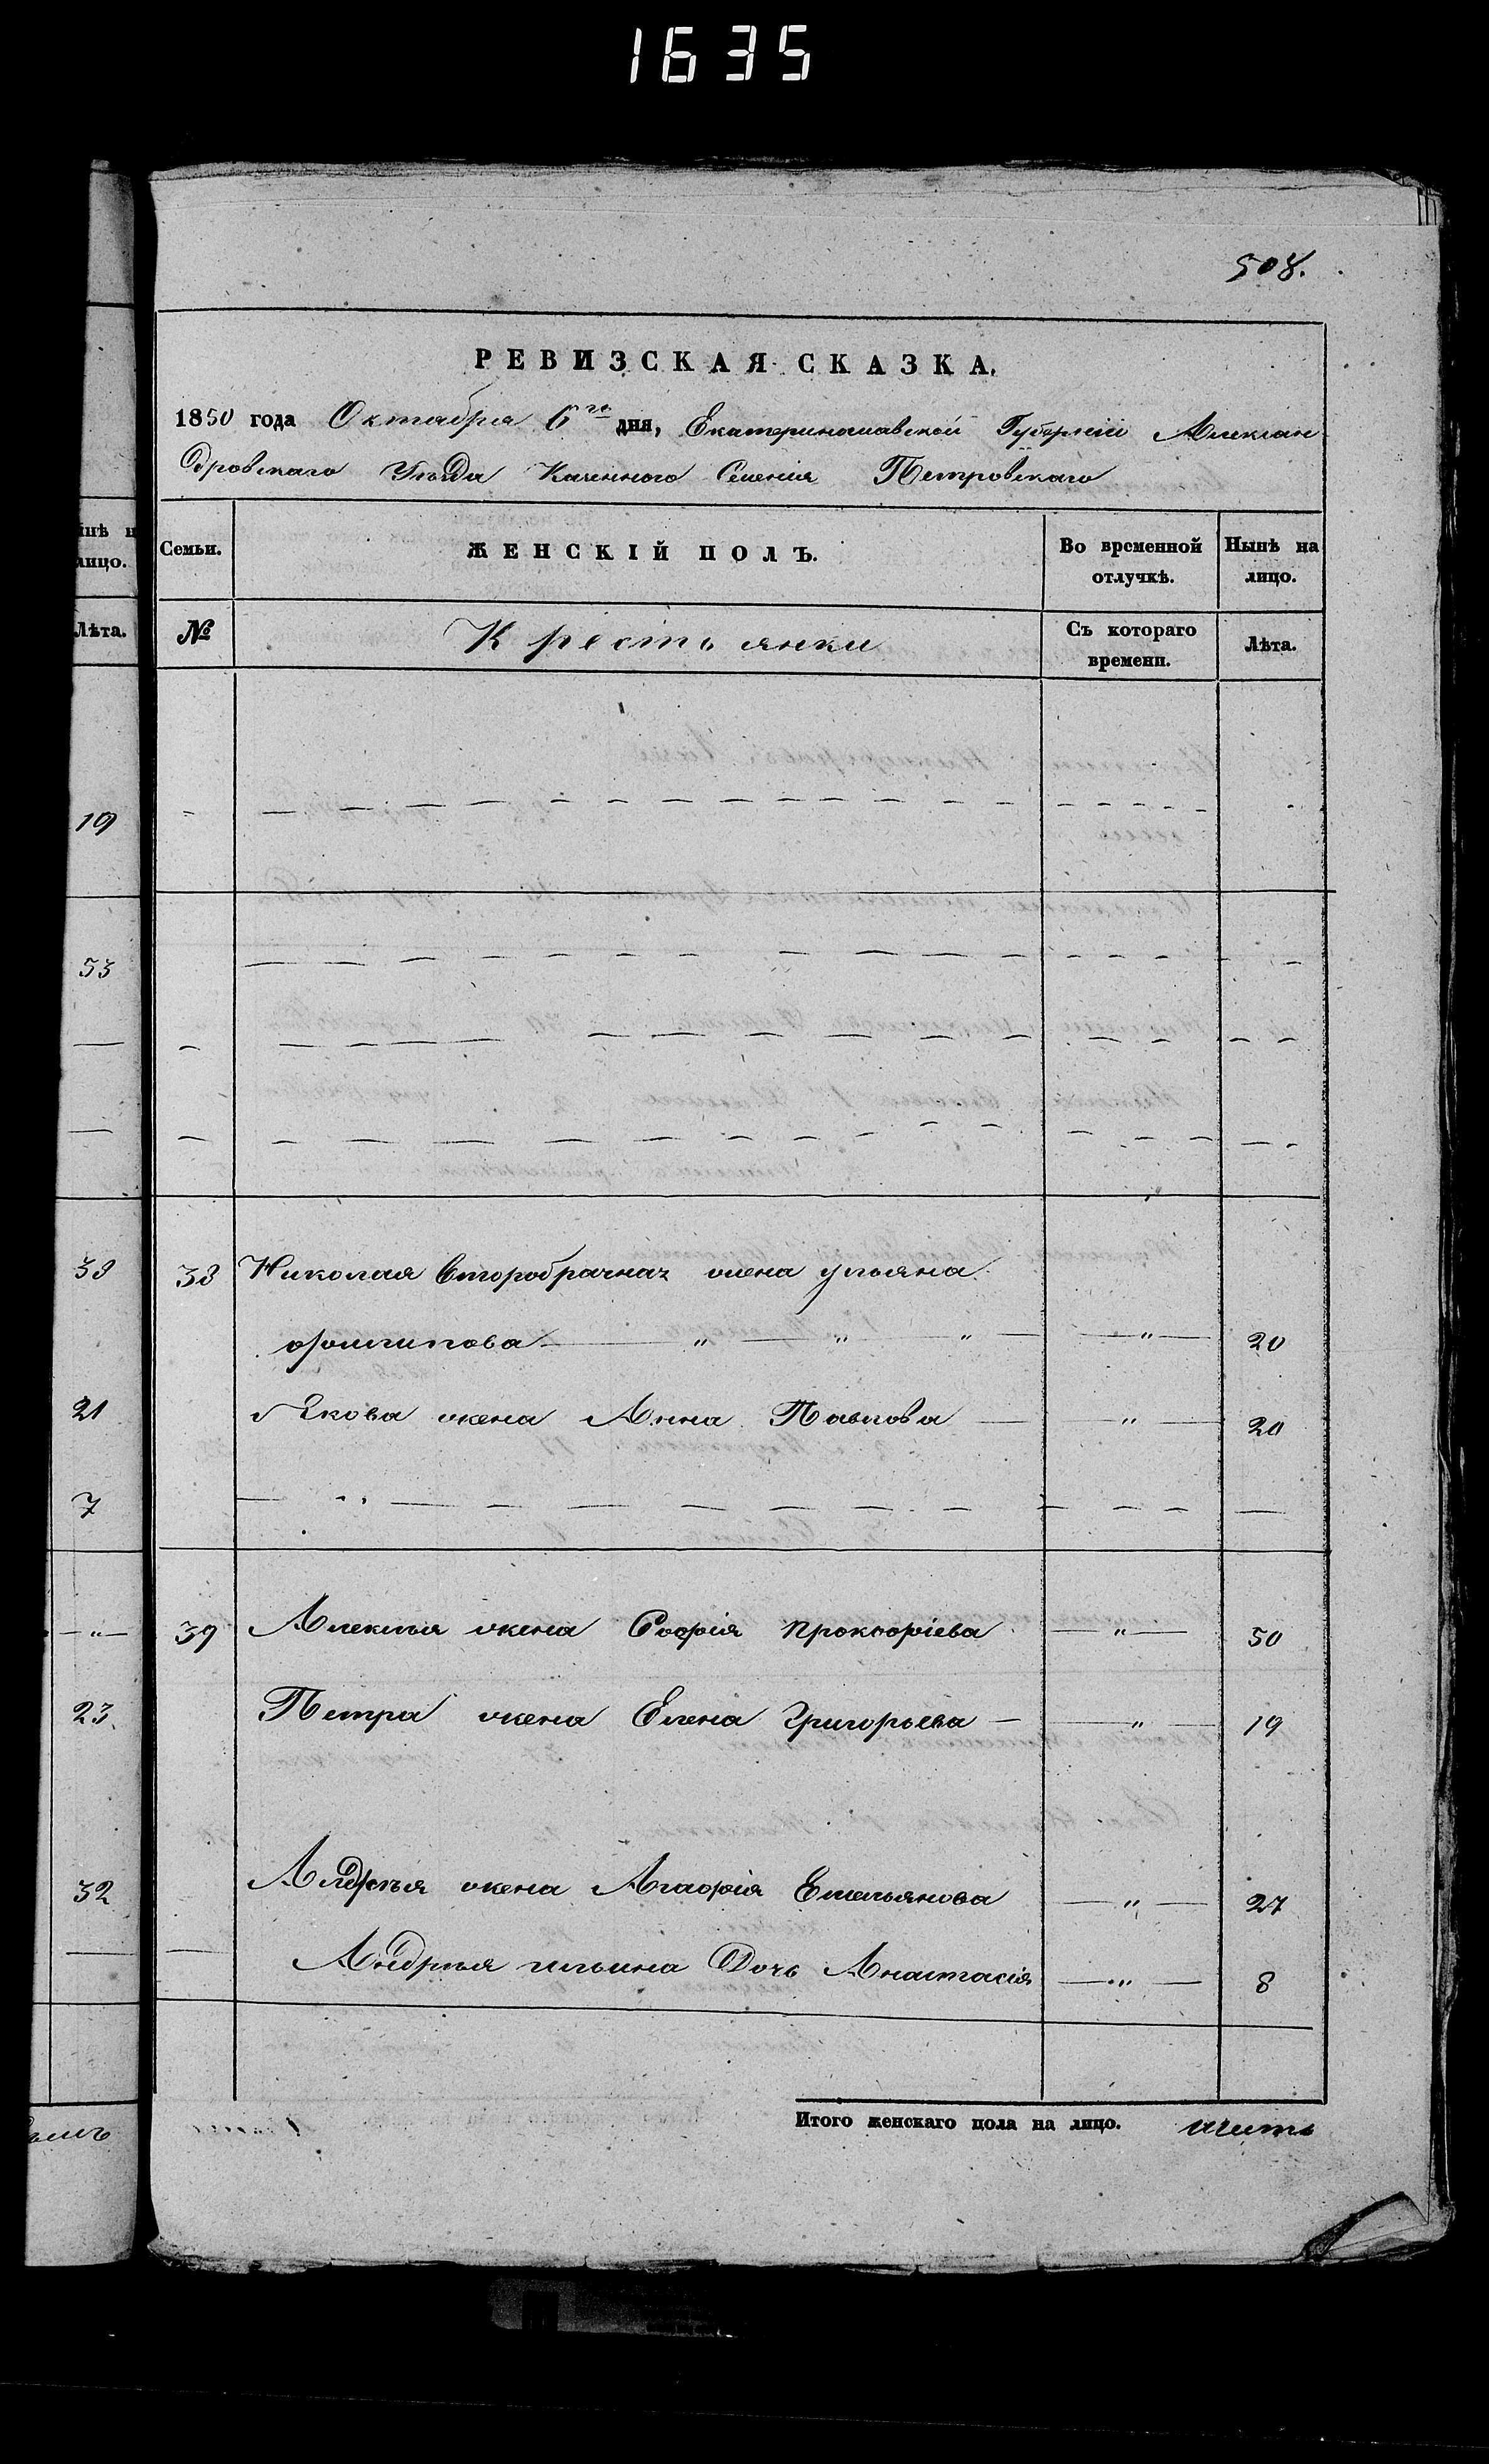 1635
508.
РЕВИЗСКАЯ СКАЗКА.
1850 года Октября 6го дня, Екатеринославской Губерніи Алексан
дровскаго Уѣзда Казенного Селенія Петровскаго
Семьи. ЖЕНСКІЙ ПОЛЪ. Во временной отлучкѣ. Нынѣ на лицо.
№ Крестьянки Съ котораго времени. Лѣта.
лицо.
Лѣта.
19
53
38 38 Николая второбрачная жена ульяна
20
21 Якова жена Анна Павлова — " — 20
7
— " — 39 Алексѣя жена Софія прокофіева — " — 50
23. Петра жена Елена Григорьева — — " — 19
32 Андрѣя жена Агафія Емельянова — " — 27
Андрѣя ильина Дочь Анастасія — " — 8
Итого женскаго пола на лицо. шить